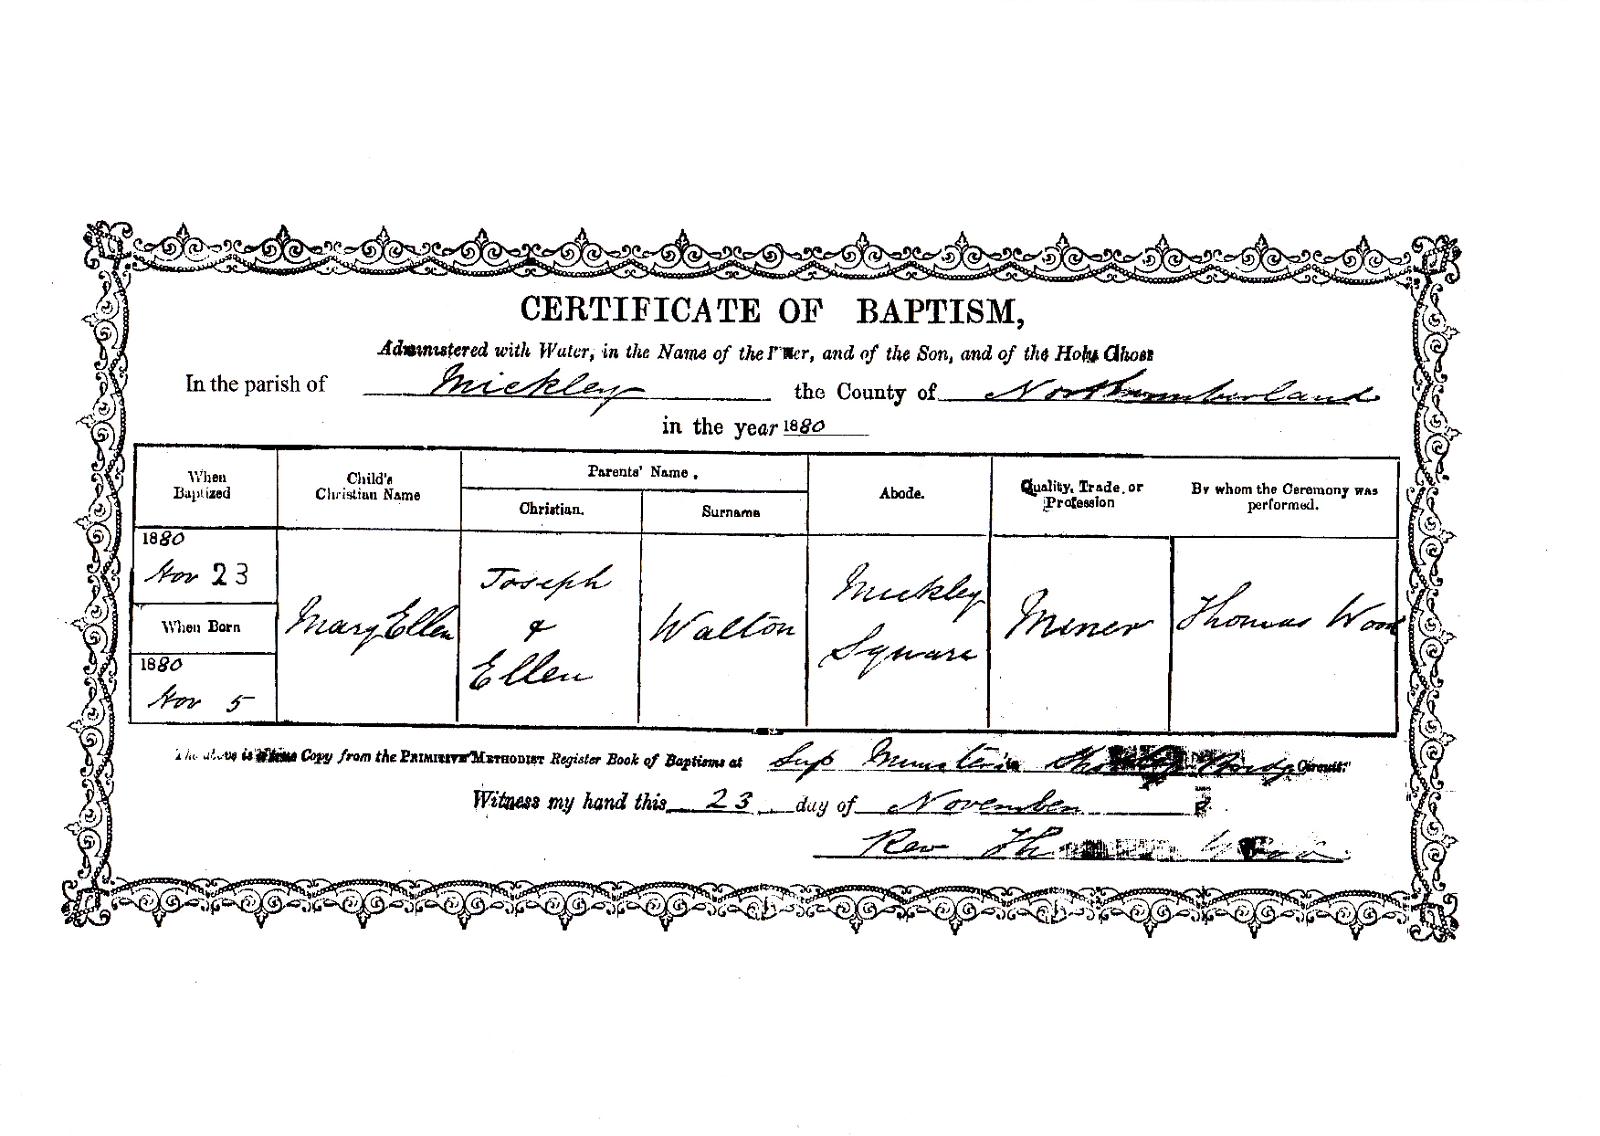 CERTIFICATE OF BAPTISM,
Administered with Water, in the Name of the and of the Son, and of the Holy Ghost
In the parish of Mickley the County of Northumberland
in the year 1880
When Baptized
Child's Christian Name
Parents' Name.
Christian.
Surname
Abode.
Quality, Trade, or Profession
By whom the Ceremony was performed.
1880
Nov 23
When Born
1880
Nov 5
Mary Ellen
Joseph
&
Ellen
Walton
Mickley
Square
Miner
Thomas Wood
The above is a Copy from the PRIMITIVE METHODIST Register Book of Baptisms at Sup Minister Circuit.
Witness my hand this 23 day of November
Rev